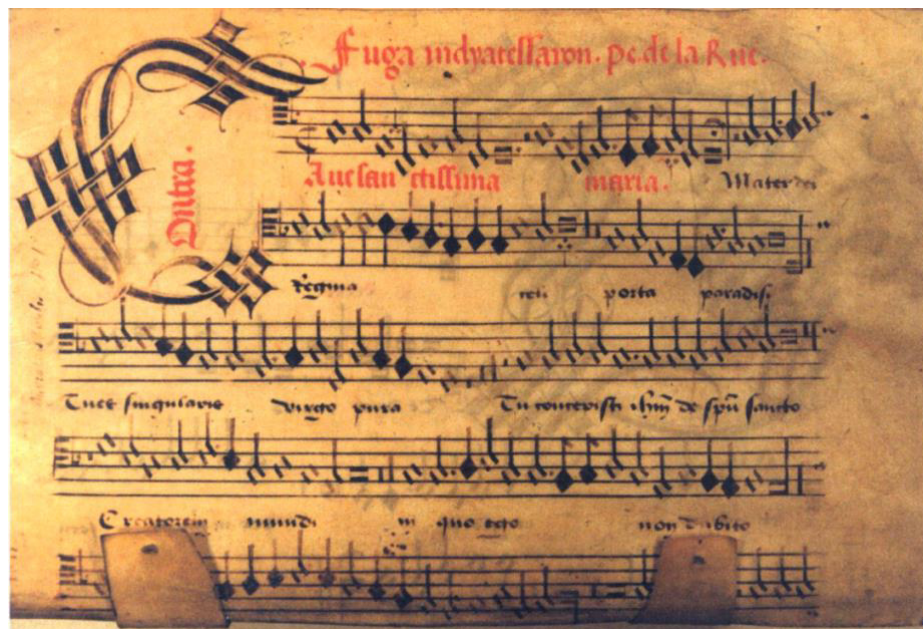 Fuga in dyatessaron. Pe. de la Rue.
Contra.
Ave san ctissima maria. Mater dei
Regina celi porta paradisi
Tu es singularis virgo pura Tu concepisti ihm de spu sancto
Creatorem mundi in quo ego non dubito